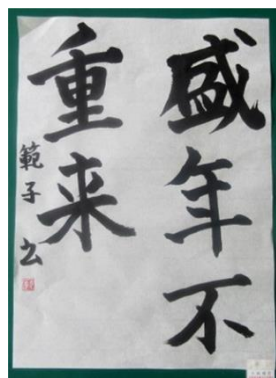 盛年不
重来
範子書